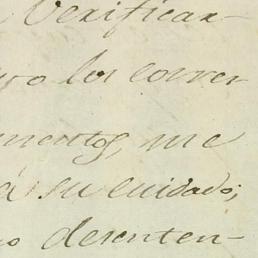 Verificar-
los correr
mentos, me
á su cuidado;
desenten-